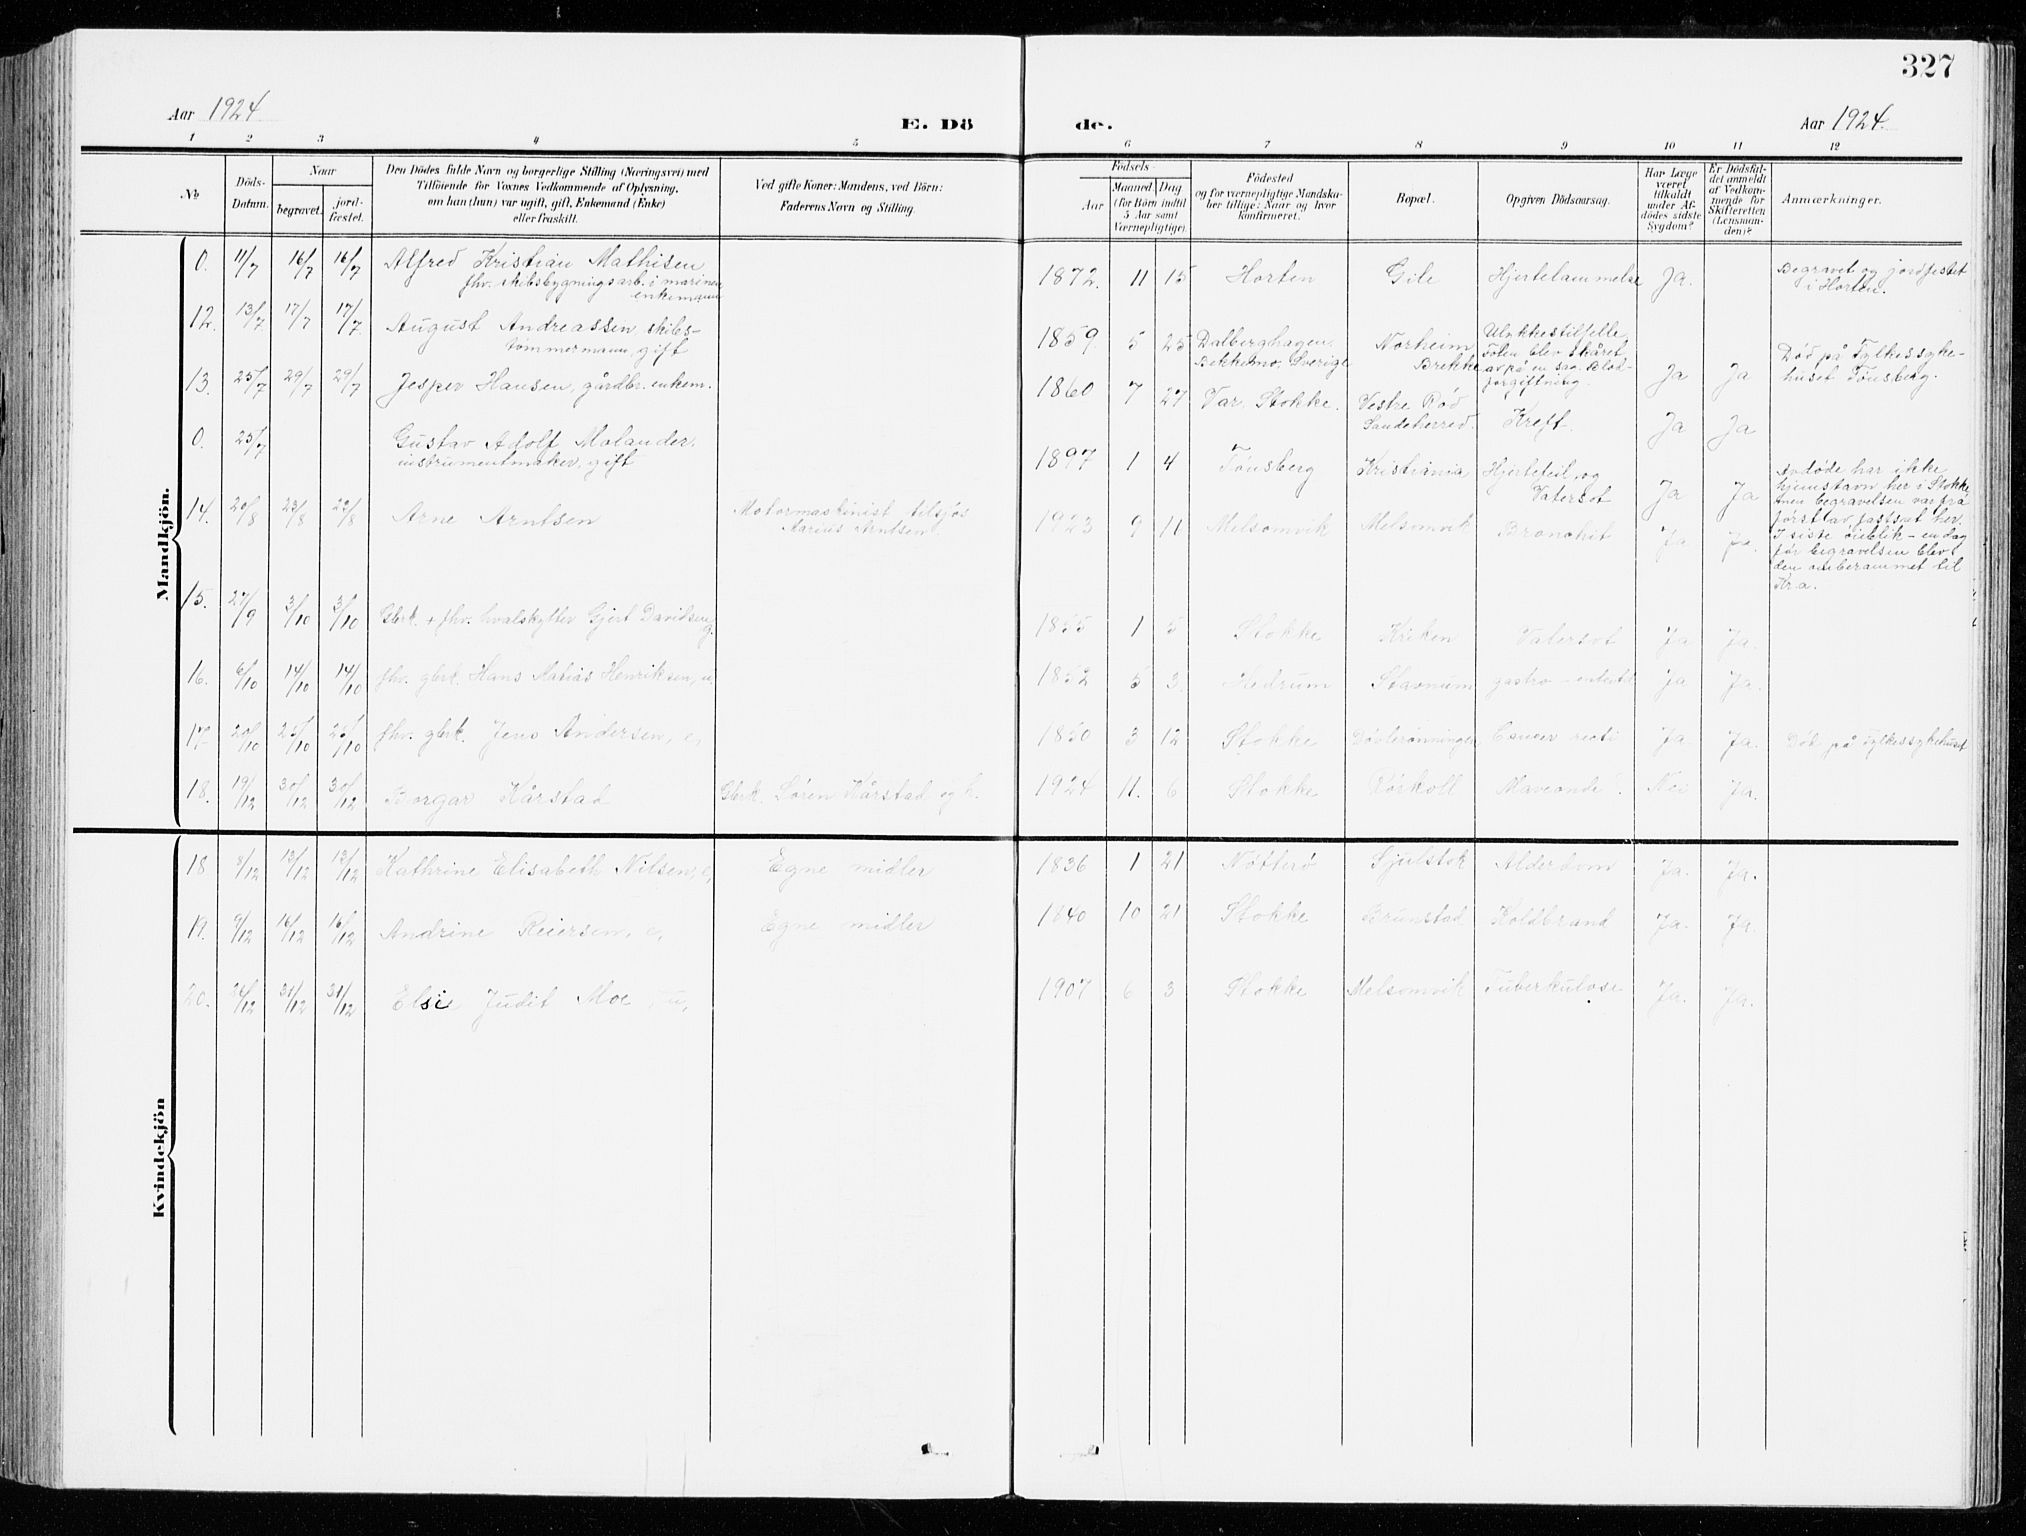 327
Aar 1924
E. Dö
de.
Aar 1924.
1 2 3 4 5 6 7 8 9 10 11 12
No
Döds-
Datum.
Naar
begravet.
jord-
fæstet.
Den Dödes fulde Navn og borgerlige Stilling (Næringsvei) med
Tilföiende for Voxnes Vedkommende af Oplysning,
om han (hun) var ugift, gift, Enkemand (Enke)
eller fraskilt.
Ved gifte Koner: Mandens, ved Börn:
Faderens Navn og Stilling.
Födsels
Aar
Maaned Dag
(for Börn indtil
5 Aar samt
Værnepligtige)
Födested
og for værnepligtige Mandska-
ber tillige: Naar og hvor
konfirmeret.
Bopæl.
Opgiven Dödsaarsag.
Har Læge
været
tilkaldt
under Af-
dödes sidste
Sygdom?
Er Dödsfal-
det anmeldt
af Vedkom-
mende for
Skifteretten
(Lensman-
den)?
Anmærkninger.
Mandkjön.
0. 11/7 16/7 16/7 Alfred Kristian Mathisen
fhv. skibsbygningsarb. i marinen
enkemann
1872. 11 15 Horten Gile Hjertelammelse Ja.
Begravet og jordfestet
i Horten.
12. 13/7 17/7 17/7 August Andreassen skibs-
tømmermann, gift
1859. 5 25 Dalberghagen.
Bekkemo, Sverige
Norheim
Brekke
Ulykkestilfelle
Foten blev skåret
av på en sag. Blod-
forgiftning.
Ja Ja
Død på Fylkessyke-
huset Tønsberg.
13. 25/7 29/7 29/7 Jesper Hansen, gårdbr. enkem.
1860 7 27 Var. Stokke. Vestre Rød
Sandeherred.
Kreft. Ja Ja
0. 25/7 Gustav Adolf Molander.
instrumentmaker, gift
1897 1 4 Tønsberg Kristiania Hjertefeil og
Vatersot Ja Ja
Avdøde har ikke
hjemstavn her i Stokke
men begravelsen var fra
først av fastsat her.
I siste øieblik - en dag
før begravelsen blev
den omberammet til
Kr.a.
14. 20/8 23/8 22/8 Arne Arntsen Motormaskinist tilsjøs
Marius Arntsen.
1923 9 11 Melsomvik Melsomvik Bronchit Ja Ja.
15. 27/9 3/10 3/10 Gbrk. + fhv. hvalskytter Gjert Davidsen,
g.
1855 1 5 Stokke Kreken Vatersot Ja Ja.
16. 6/10 14/10 14/10 fhv. gbrk. Hans Matias Henriksen, u.
1852 5 3. Hedrum Stavnum gastro-enterit Ja Ja.
17 20/10 25/10 25/10 fhv. gbrk. Jens Andersen, e,
1850 3 12 Stokke Døvlerønningen Cancer recti Ja Ja. Død på Fylkessykehuset
18. 19/12 30/12 30/12 Borgar Kårstad Gbrk. Søren Kårstad og h.
1924 11. 6 Stokke Rørkoll Maveonde. Nei Ja.
Kvindekjön
18 8/12 13/12 13/12 Kathrine Elisabeth Nilsen, e, Egne midler
1836 1 21 Nøtterø Gjulstok Alderdom Ja. Ja.
19. 9/12 16/12 16/12 Andrine Reiersen, e, Egne midler
1840 10 21 Stokke Brunstad Koldbrand Ja. Ja.
20. 24/12 31/12 31/12 Elsie Judit Moe, u,
1907 6 3 Stokke Melsomvik Tuberkulose Ja. Ja.